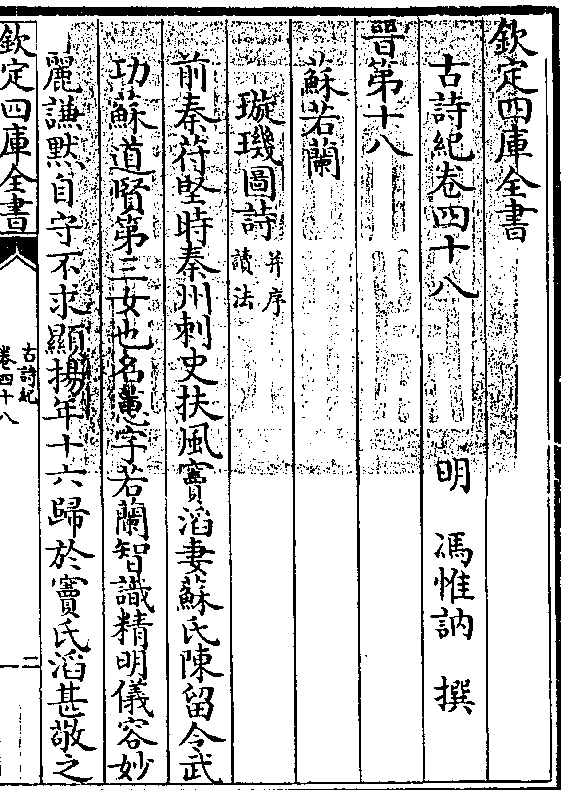 欽定四庫全書
古詩紀卷四十八
明 馮惟訥 撰
晉第十八
蘇若蘭
璇璣圖詩
并序
讀法
前秦苻堅時秦州刺史扶風竇滔妻蘇氏陳留令武
功蘇道賢第三女也名蕙字若蘭智識精明儀容妙
麗謙默自守不求顯揚年十六歸於竇氏滔甚敬之
欽定四庫全書
古詩紀
卷四十八